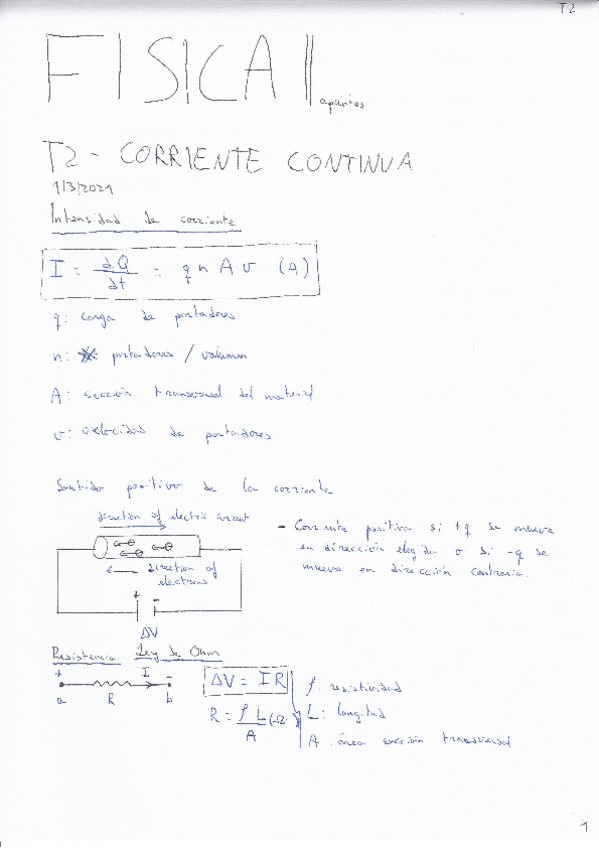 T2
FISICA II
apuntes
T2 - CORRIENTE CONTINUA
1/3/2021
Intensidad de corriente
I = dQ/dt = q n A v (A)
q: carga de portadores
n: portadores / volumen
A: sección transversal del material
v: velocidad de portadores
Sentido positivo de la corriente
direction of electric current
- Corriente positiva si +q se mueve
en dirección elegida o si -q se
mueve en dirección contraria.
direction of
electrons
+ -
ΔV
Resistencia. Ley de Ohm
+ I -
a R b
ΔV = I R
R = ρ L / A (Ω)
ρ: resistividad
L: longitud
A: área sección transversal
1